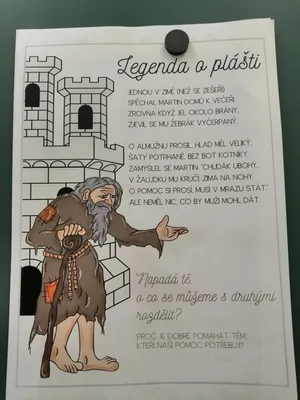 Legenda o plášti
JEDNOU V ZIMĚ (NEŽ SE ZEŠEŘÍ)
SPĚCHAL MARTIN DOMŮ K VEČEŘI.
ZROVNA KDYŽ JEL OKOLO BRÁNY,
ZJEVIL SE MU ŽEBRÁK VYČERPANÝ.
O ALMUŽNU PROSIL. HLAD MĚL VELIKÝ,
ŠATY POTRHANÉ, BEZ BOT KOTNÍKY.
ZAMYSLEL SE MARTIN: "CHUDÁK UBOHÝ,
V ŽALUDKU MU KRUČÍ, ZIMA NA NOHY.
O POMOC SI PROSÍ, MUSÍ V MRAZU STÁT."
ALE NEMĚL NIC, CO BY MUŽI MOHL DÁT.
Napadá tě,
a co se můžeme s druhými
rozdělit?
PROČ JE DOBRÉ POMÁHAT TĚM,
KTEŘÍ NAŠI POMOC POTŘEBUJÍ?